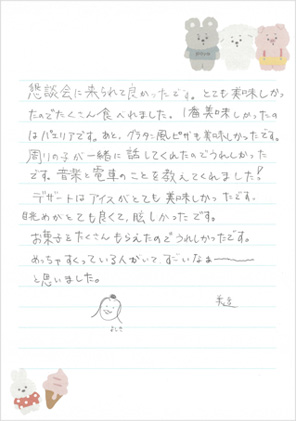 懇談会に来られて良かったです。とても美味しかっ
たのでたくさん食べれました。1番美味しかったの
はパエリアです。あと、グラタン風ピザも美味しかったです。
周りの子が一緒に話してくれたのでうれしかった
です。音楽と電車のことを教えてくれました!
デザートはアイスがとても美味しかったです。
眺めがとても良くて、眩しかったです。
お菓子とたくさんもらえたのでうれしかったです。
めっちゃすくっている人がいて、すごいなぁ〜
と思いました。